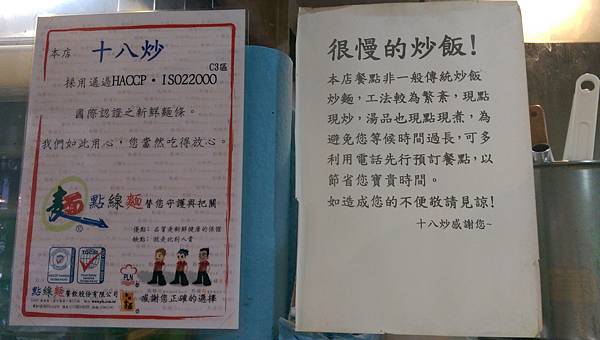 本店 十八炒
C3區
採用通過HACCP・ISO22000
國際認證之新鮮麵條。
我們如此用心，您當然吃得放心。
麵 點線麵 替您守護與把關
優點：品質是新鮮健康的保證
缺點：就是比別人貴
點線麵餐飲股份有限公司
感謝您正確的選擇
很慢的炒飯！
本店餐點非一般傳統炒飯
炒麵，工法較為繁紊，現點
現炒，湯品也現點現煮，為
避免您等候時間過長，可多
利用電話先行預訂餐點，以
節省您寶貴時間。
如造成您的不便敬請見諒！
十八炒感謝您~